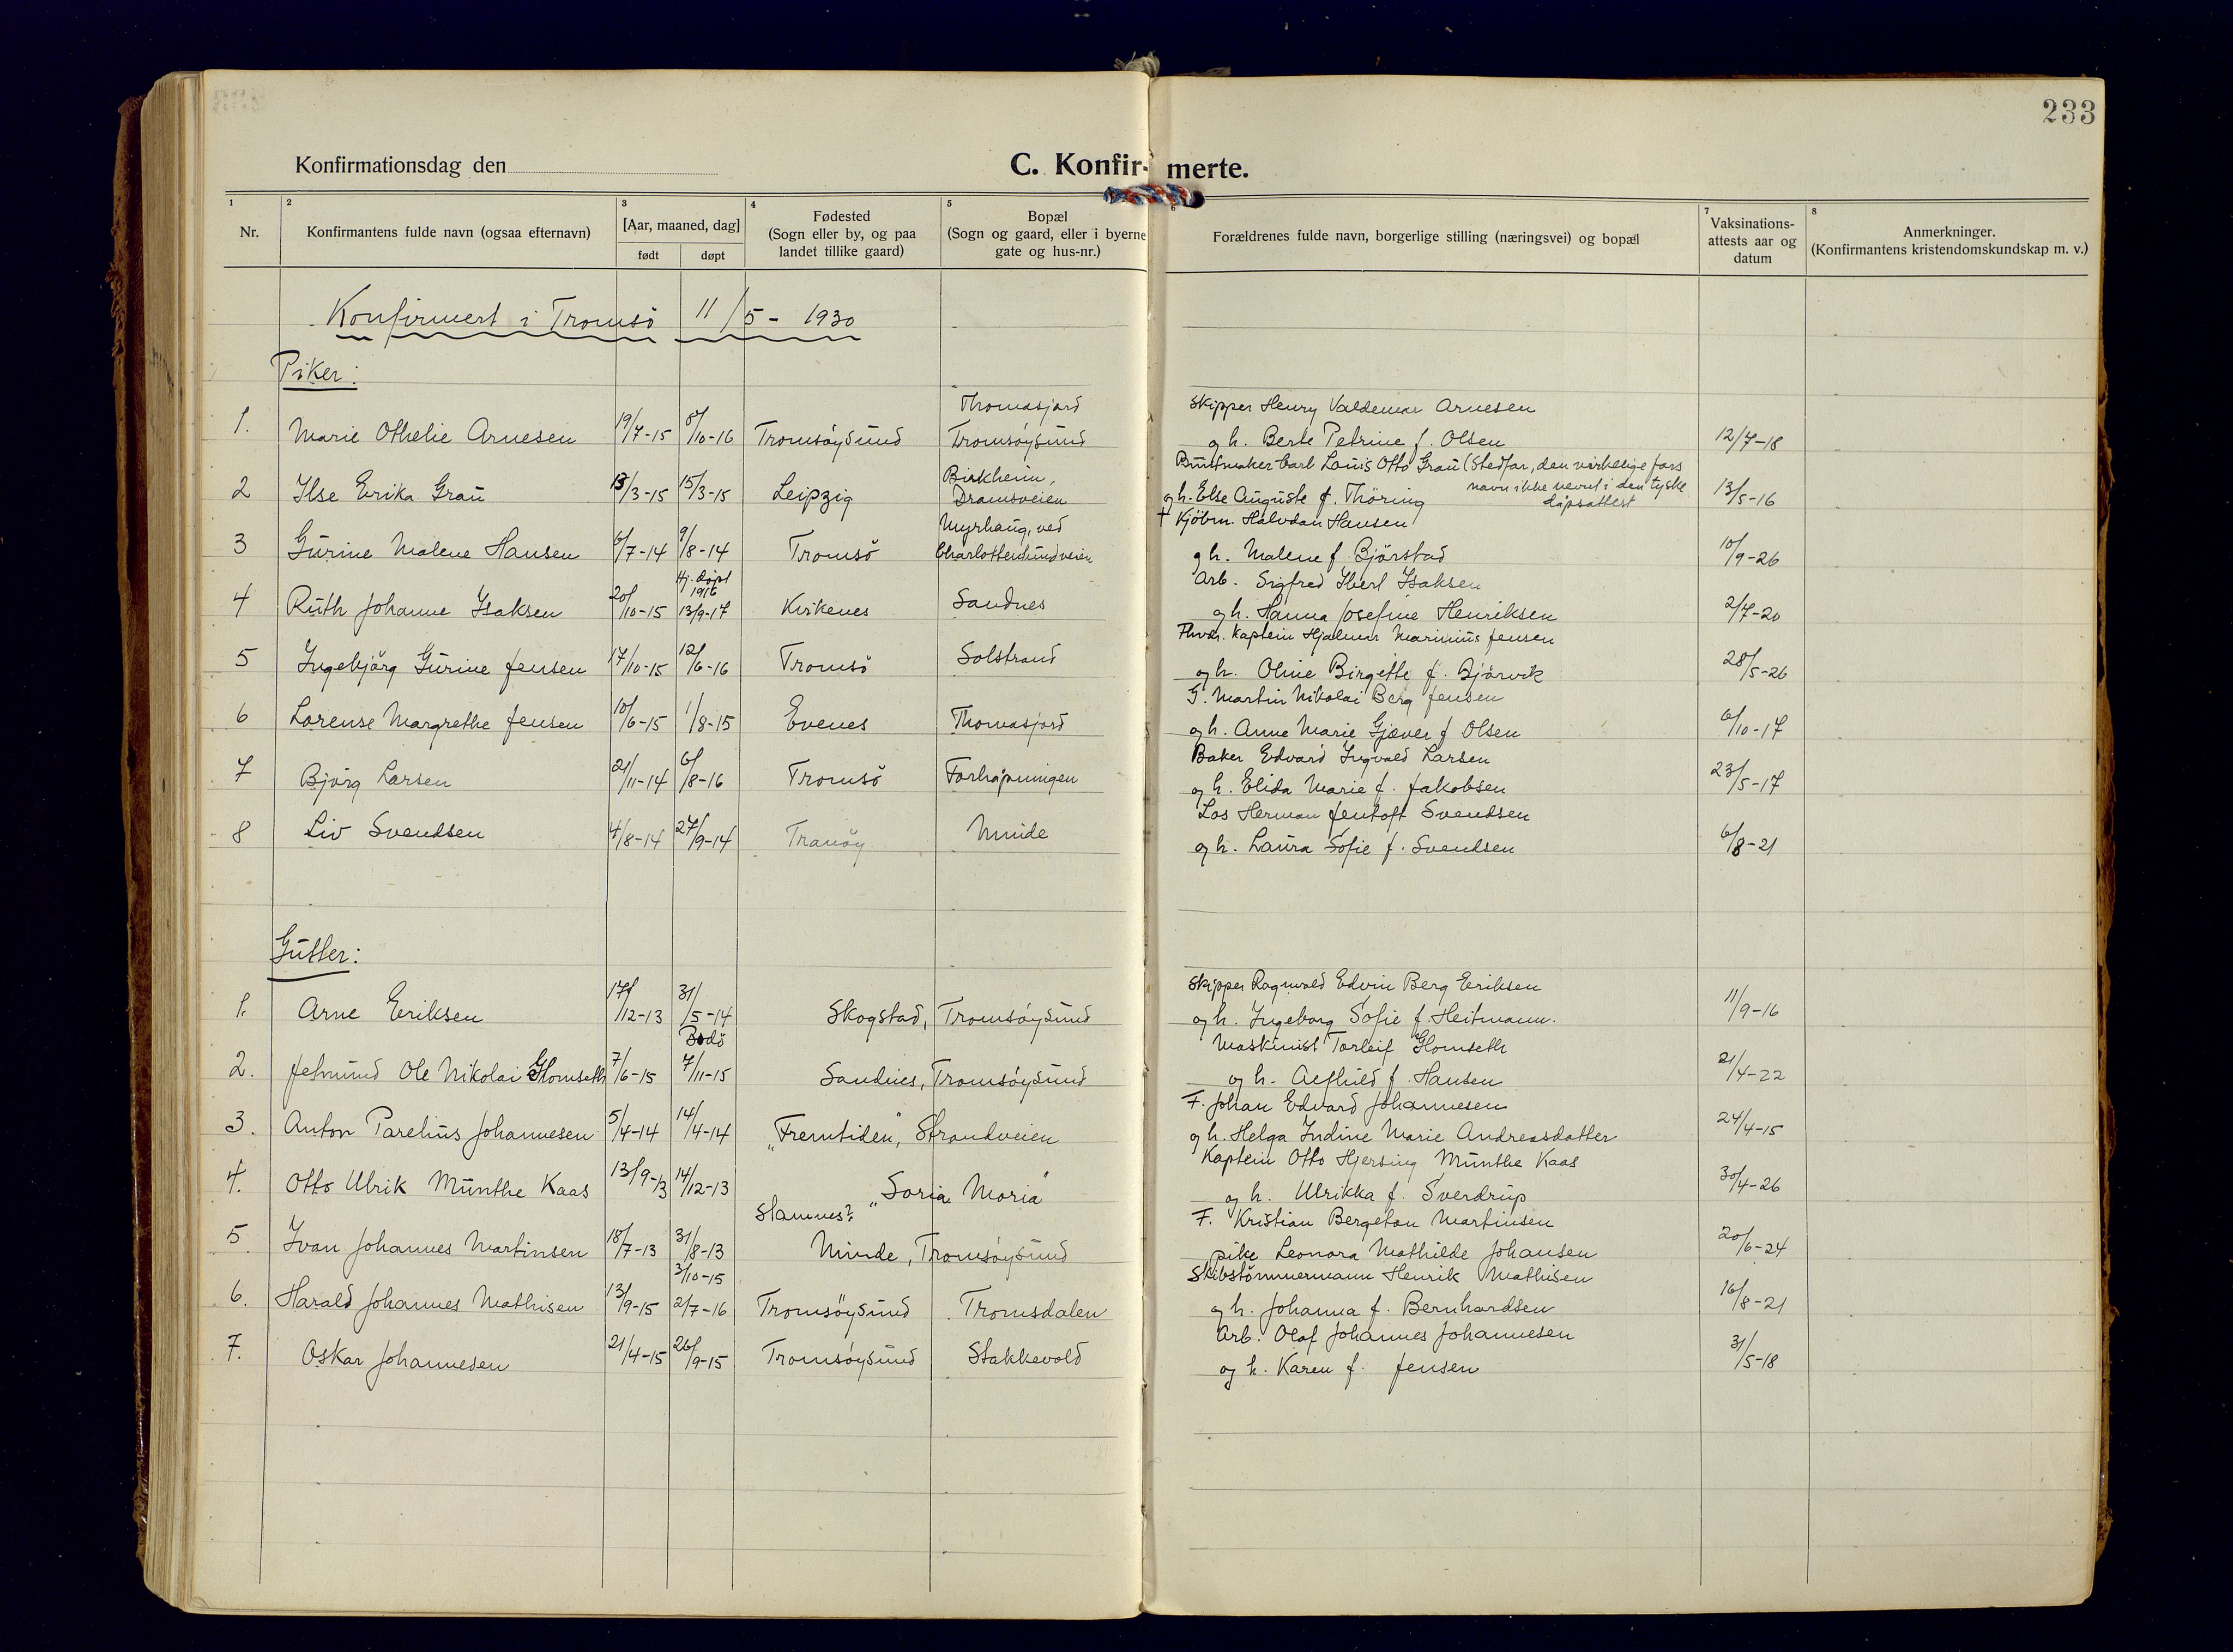 233
Konfirmationsdag den
C. Konfir- merte.
1 2 3 4 5 6 7 8
Nr.
Konfirmantens fulde navn (ogsaa efternavn)
[Aar, maaned, dag]
født døpt
Fødested
(Sogn eller by, og paa
landet tillike gaard)
Bopæl
(Sogn og gaard, eller i byerne
gate og hus-nr.)
Forældrenes fulde navn, borgerlige stilling (næringsvei) og bopæl
Vaksinations-
attests aar og
datum
Anmerkninger.
(Konfirmantens kristendomskundskap m. v.)
Konfirmert i Tromsö 11/5 - 1930
Piker:
Thomasjord Skipper Henry Valdemar Arnesen
1. Marie Othelie Arnesen 19/7-15 8/10-16 Tromsöysund Tromsöysund og h. Berte Petrine f. Olsen 12/7-18
Birkheim, Buntmaker Carl Louis Otto Grau (Stedfar, den virkelige fars
2 Ilse Erika Grau 13/3-15 15/3-15 Leipzig Dramsveien og h. Else Auguste f. Thöring navn ikke nevnt i den tyske dåpsattest 13/5-16
Myrhaug, ved † Kjöbm. Halvdan Hansen
3 Gurine Malene Hansen 6/7-14 9/8-14 Tromsö Charlottenlundveien og h. Malene f. Björstad 10/9-26
Hj. döpt 1916 Arb. Sigfred Isaksen
4 Ruth Johanne Isaksen 20/10-15 13/9-17 Kirkenes Sandnes og h. Hanna Josefine Henriksen 2/7-20
Kaptein Hjalmar Marinius Jensen
5 Ingebjörg Gurine Jensen 17/10-15 12/6-16 Tromsö Solstrand og h. Oline Birgette f. Björvik 28/5-26
G. Martin Nikolai Berg Jensen
6 Lorense Margrethe Jensen 10/6-15 1/8-15 Evenes Thomasjord og h. Anne Marie Gjæver f Olsen 6/10-17
Baker Edvard Ingvald Larsen
7 Björg Larsen 21/11-14 6/8-16 Tromsö Forhåpningen og h. Elida Marie f. Jakobsen 23/5-17
Los Herman Jentoft Svendsen
8 Liv Svendsen 4/8-14 27/9-14 Tranöy Minde og h. Laura Sofie f. Svendsen 6/8-21
Gutter:
Skipper Ragnvald Edvin Berg Eriksen
1. Arne Eriksen 17/12-13 31/5-14 Skogstad, Tromsöysund og h. Ingeborg Sofie f. Heitmann. 11/9-16
Bodö Maskinist Torleif Glomseth
2. Jetmund Ole Nikolai Glomseth 7/6-15 7/11-15 Sandnes, Tromsöysund og h. f. Hansen 21/4-22
F. Johan Edvard Johannesen
3. Anton Parelius Johannesen 5/4-14 14/4-14 „Fremtiden", Strandveien og h. Helga Indine Marie Andreasdatter 24/4-15
Kaptein Otto Hjersing Munthe Kaas
4. Otto Ulrik Munthe Kaas 13/9-13 14/12-13 „Soria Moria" og h. Ulrikka f. Sverdrup 30/4-26
Stamnes? F. Kristian Bergeton Martinsen
5. Ivan Johannes Martinsen 18/7-13 31/8-13 Minde, Tromsöysund pike Leonora Mathilde Johansen 20/6-24
3/10-15 Skibstömmermann Henrik Mathisen
6. Harald Johannes Mathisen 13/9-15 2/7-16 Tromsöysund Tromsdalen og h. Johanna f. Bernhardsen 16/8-21
Arb. Olaf Johannes Johannesen
7. Oskar Johannesen 21/4-15 26/9-15 Tromsöysund Stakkevold og h. Karen f. Jensen 31/5-18